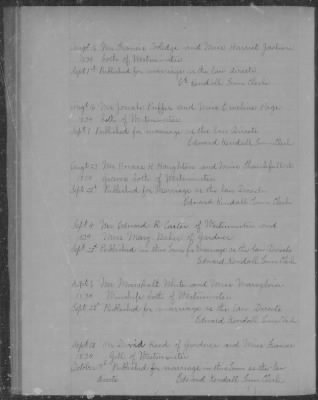 Augt 2 Mr Francis Coledge and Miss Harriet Jackson
1834 both of Westminster
Sept 1st Published for marriage as the law directs
Ed Kendall Town Clerk
Augt 9 Mr Jonah Puffer and Miss Caroline Page
1834 both of Westminster
Sept 1 Published for marriage as the law Directs
Edward Kendall Town Clerk
Augt 23 Mr Horace H Houghton and Miss Thankfull M
1834 Graves both of Westminster
Sept 22d Published for Marriage as the law Directs
Edward Kendall Town Clerk
Sept 4 Mr Edmond R Carter of Westminster and
1834 Miss Mary Baker of Gardner
Published in this Town for Marriage as the law Directs
Edward Kendall Town Clerk
Sept 6 Mr Marshall White and Miss
1834 both of Westminster
Sept 22d Published for marriage as the law Directs
Edward Kendall Town Clerk
Sept Mr David Reed of Gardner and Miss Eunice
1834 Gill of Westminster
October Published for marriage in this Town as the law
directs Edward Kendall Town Clerk